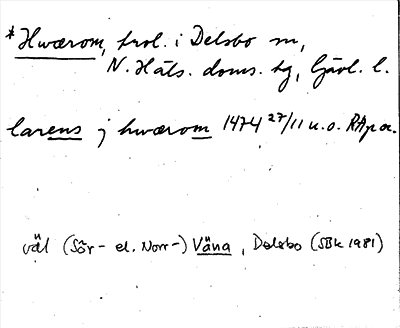 *Hwærom, trol. i Delsbo sn,
N. Häls. doms. hg, Gävl. l.
larens j hwærom 1474 27/11 u.o. RAp or.
väl (Sör- el. Norr-) Väna, Delsbo (SBk 1981)